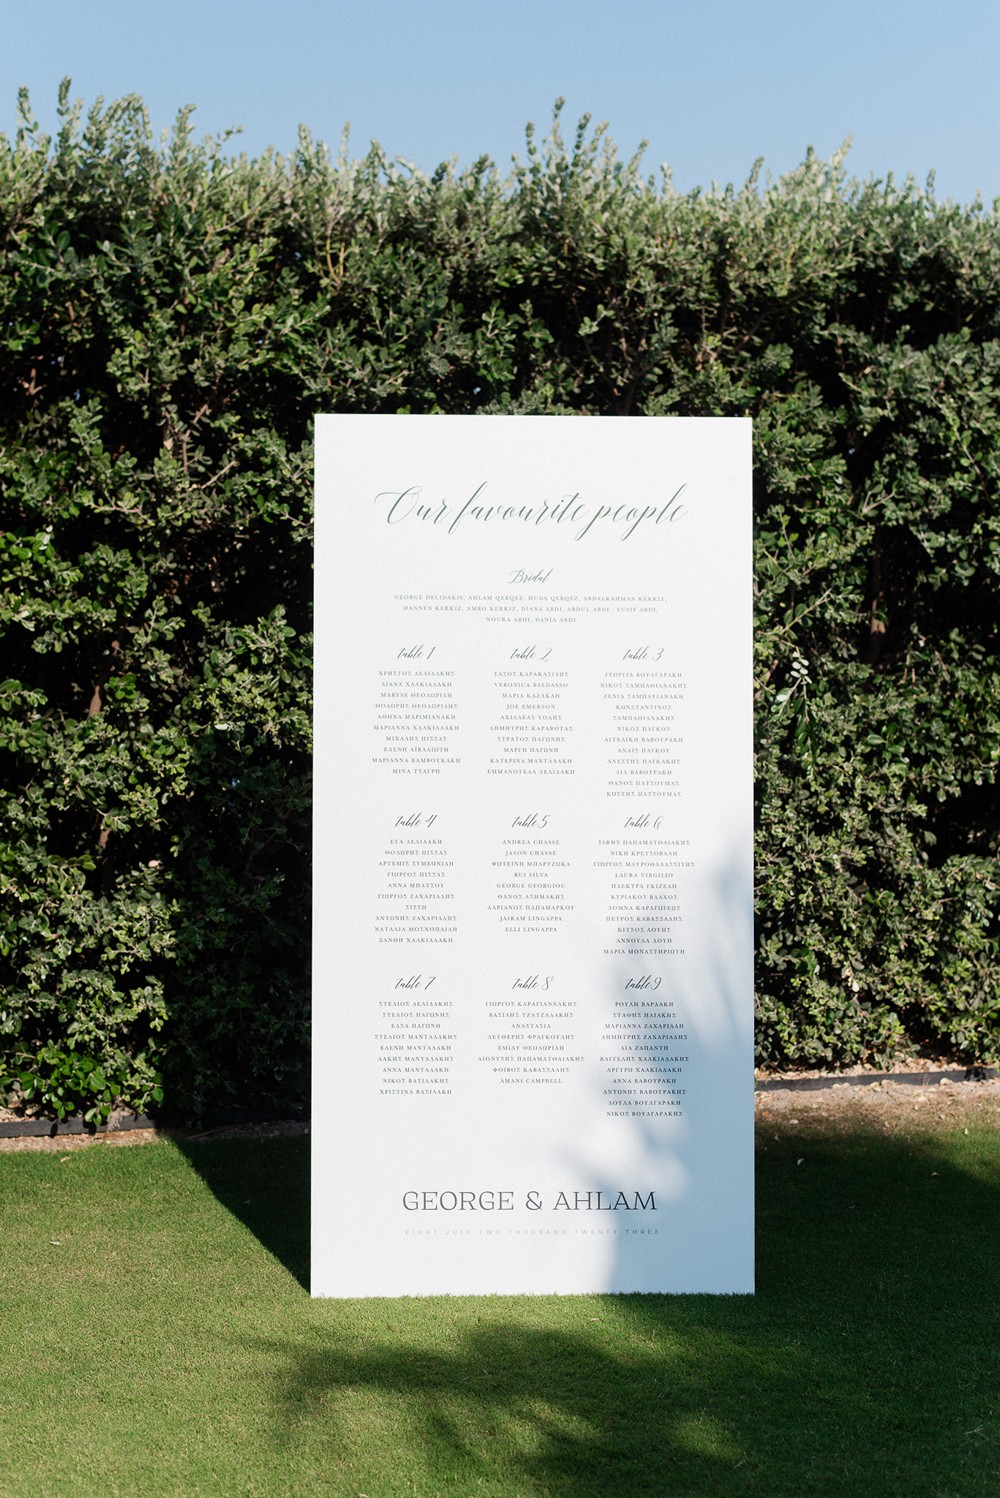 Our favourite people
Bridal
GEORGE DELIDAKIS, AHLAM QERQEZ, HUDA QERQEZ, ABDALRAHMAN KERKIZ,
HANNEN KERKIZ, AMRO KERKIZ, DIANA ABDI, ABDUL ABDI , YUSIF ABDI,
NOURA ABDI, DANIA ABDI
table 1
ΧΡΗΣΤΟΣ ΔΕΛΙΔΑΚΗΣ
ΛΙΑΝΑ ΧΑΛΚΙΑΔΑΚΗ
MARYSE ΘΕΟΔΩΡΙΔΗ
ΘΟΔΩΡΗΣ ΘΕΟΔΩΡΙΔΗΣ
ΑΘΗΝΑ ΜΑΡΙΜΙΑΝΑΚΗ
ΜΑΡΙΑΝΝΑ ΧΑΛΚΙΑΔΑΚΗ
ΜΙΧΑΛΗΣ ΠΙΣΣΑΣ
ΕΛΕΝΗ ΑΪΒΑΛΙΩΤΗ
ΜΑΡΙΑΝΝΑ ΒΑΜΒΟΥΚΑΚΗ
ΜΙΝΑ ΤΣΑΓΡΗ
table 2
ΤΑΣΟΣ ΚΑΡΑΚΑΣΙΛΗΣ
VERONICA BALDASSO
ΜΑΡΙΑ ΚΑΖΑΚΛΗ
JOE EMERSON
ΑΧΙΛΛΕΑΣ ΤΟΛΗΣ
ΔΗΜΗΤΡΗΣ ΚΑΡΑΒΟΤΑΣ
ΣΤΡΑΤΟΣ ΠΑΓΩΝΗΣ
ΜΑΡΓΗ ΠΑΓΩΝΗ
ΚΑΤΕΡΙΝΑ ΜΑΝΤΑΔΑΚΗ
ΕΜΜΑΝΟΥΕΛΑ ΔΕΛΙΔΑΚΗ
table 3
ΓΕΩΡΓΙΑ ΒΟΥΛΓΑΡΑΚΗ
ΝΙΚΟΣ ΣΑΜΠΑΘΙΑΝΑΚΗΣ
ΞΕΝΙΑ ΣΑΜΠΑΘΙΑΝΑΚΗ
ΚΩΝΣΤΑΝΤΙΝΟΣ
ΣΑΜΠΑΘΙΑΝΑΚΗΣ
ΝΙΚΟΣ ΠΑΓΚΟΣ
ΑΓΓΕΛΙΚΗ ΒΑΒΟΥΡΑΚΗ
ΑΝΑΪΣ ΠΑΓΚΟΥ
ΑΝΕΣΤΗΣ ΠΑΓΚΑΚΗΣ
ΛΙΑ ΒΑΒΟΥΡΑΚΗ
ΘΑΝΟΣ ΠΑΤΣΟΥΜΑΣ
ΚΩΣΤΗΣ ΠΑΤΣΟΥΜΑΣ
table 4
ΕΥΑ ΔΕΛΙΔΑΚΗ
ΘΟΔΩΡΗΣ ΠΙΣΣΑΣ
ΑΡΤΕΜΙΣ ΣΥΜΕΩΝΙΔΗ
ΓΙΩΡΓΟΣ ΠΙΣΣΑΣ
ΑΝΝΑ ΜΠΑΤΣΟΥ
ΓΙΩΡΓΟΣ ΖΑΧΑΡΙΑΔΗΣ
ΣΙΣΣΗ
ΑΝΤΩΝΗΣ ΖΑΧΑΡΙΑΔΗΣ
ΝΑΤΑΛΙΑ ΜΟΣΧΟΠΑΙΔΗ
ΞΑΝΘΗ ΧΑΛΚΙΑΔΑΚΗ
table 5
ANDREA CHASSE
JASON CHASSE
ΦΩΤΕΙΝΗ ΜΠΑΡΤΖΩΚΑ
RUI SILVA
GEORGE GEORGIOU
ΘΑΝΟΣ ΑΣΗΜΑΚΗΣ
ΑΔΡΙΑΝΟΣ ΠΑΠΑΜΑΡΚΟΥ
JAIRAM LINGAPPA
ELLI LINGAPPA
table 6
ΣΗΦΗΣ ΠΑΠΑΜΑΤΘΑΙΑΚΗΣ
ΝΙΚΗ ΚΡΕΤΣΟΒΑΛΗ
ΓΙΩΡΓΟΣ ΜΑΥΡΟΘΑΛΑΣΣΙΤΗΣ
LAURA VIRGILIO
ΗΛΕΚΤΡΑ ΓΚΙΖΕΛΗ
ΚΥΡΙΑΚΟΣ ΒΛΑΧΟΣ
ΔΟΜΝΑ ΚΑΡΑΓΩΓΕΩΣ
ΠΕΤΡΟΣ ΚΑΒΑΣΣΑΛΗΣ
ΚΙΤΣΟΣ ΛΟΥΗΣ
ΑΝΝΟΥΛΑ ΛΟΥΗ
ΜΑΡΙΑ ΜΟΝΑΣΤΗΡΙΩΤΗ
table 7
ΣΤΕΛΙΟΣ ΔΕΛΙΔΑΚΗΣ
ΣΤΕΛΙΟΣ ΠΑΓΩΝΗΣ
ΕΛΣΑ ΠΑΓΩΝΗ
ΣΤΕΛΙΟΣ ΜΑΝΤΑΔΑΚΗΣ
ΕΛΕΝΗ ΜΑΝΤΑΔΑΚΗ
ΛΑΚΗΣ ΜΑΝΤΑΔΑΚΗΣ
ΑΝΝΑ ΜΑΝΤΑΔΑΚΗ
ΝΙΚΟΣ ΒΑΣΙΛΑΚΗΣ
ΧΡΙΣΤΙΝΑ ΒΑΣΙΛΑΚΗ
table 8
ΓΙΩΡΓΟΣ ΚΑΡΑΓΙΑΝΝΑΚΗΣ
ΒΑΣΙΛΗΣ ΤΖΑΤΖΑΔΑΚΗΣ
ΑΝΑΣΤΑΣΙΑ
ΛΕΥΘΕΡΗΣ ΦΡΑΓΚΟΥΛΗΣ
ΕΜΙΛΥ ΘΕΟΔΩΡΙΔΗ
ΔΙΟΝΥΣΗΣ ΠΑΠΑΜΑΤΘΑΙΑΚΗΣ
ΦΟΙΒΟΣ ΚΑΒΑΣΣΑΛΗΣ
AMANI CAMPBELL
table 9
ΡΟΥΛΗ ΒΑΡΔΑΚΗ
ΣΤΑΘΗΣ ΗΛΙΑΚΗΣ
ΜΑΡΙΑΝΝΑ ΖΑΧΑΡΙΑΔΗ
ΔΗΜΗΤΡΗΣ ΖΑΧΑΡΙΑΔΗΣ
ΛΙΑ ΖΑΠΑΝΤΗ
ΒΑΓΓΕΛΗΣ ΧΑΛΚΙΑΔΑΚΗΣ
ΑΡΓΥΡΩ ΧΑΛΚΙΑΔΑΚΗ
ΑΝΝΑ ΒΑΒΟΥΡΑΚΗ
ΑΝΤΩΝΗΣ ΒΑΒΟΥΡΑΚΗΣ
ΛΟΥΛΑ ΒΟΥΛΓΑΡΑΚΗ
ΝΙΚΟΣ ΒΟΥΛΓΑΡΑΚΗΣ
GEORGE & AHLAM
EIGHT JULY TWO THOUSAND TWENTY THREE